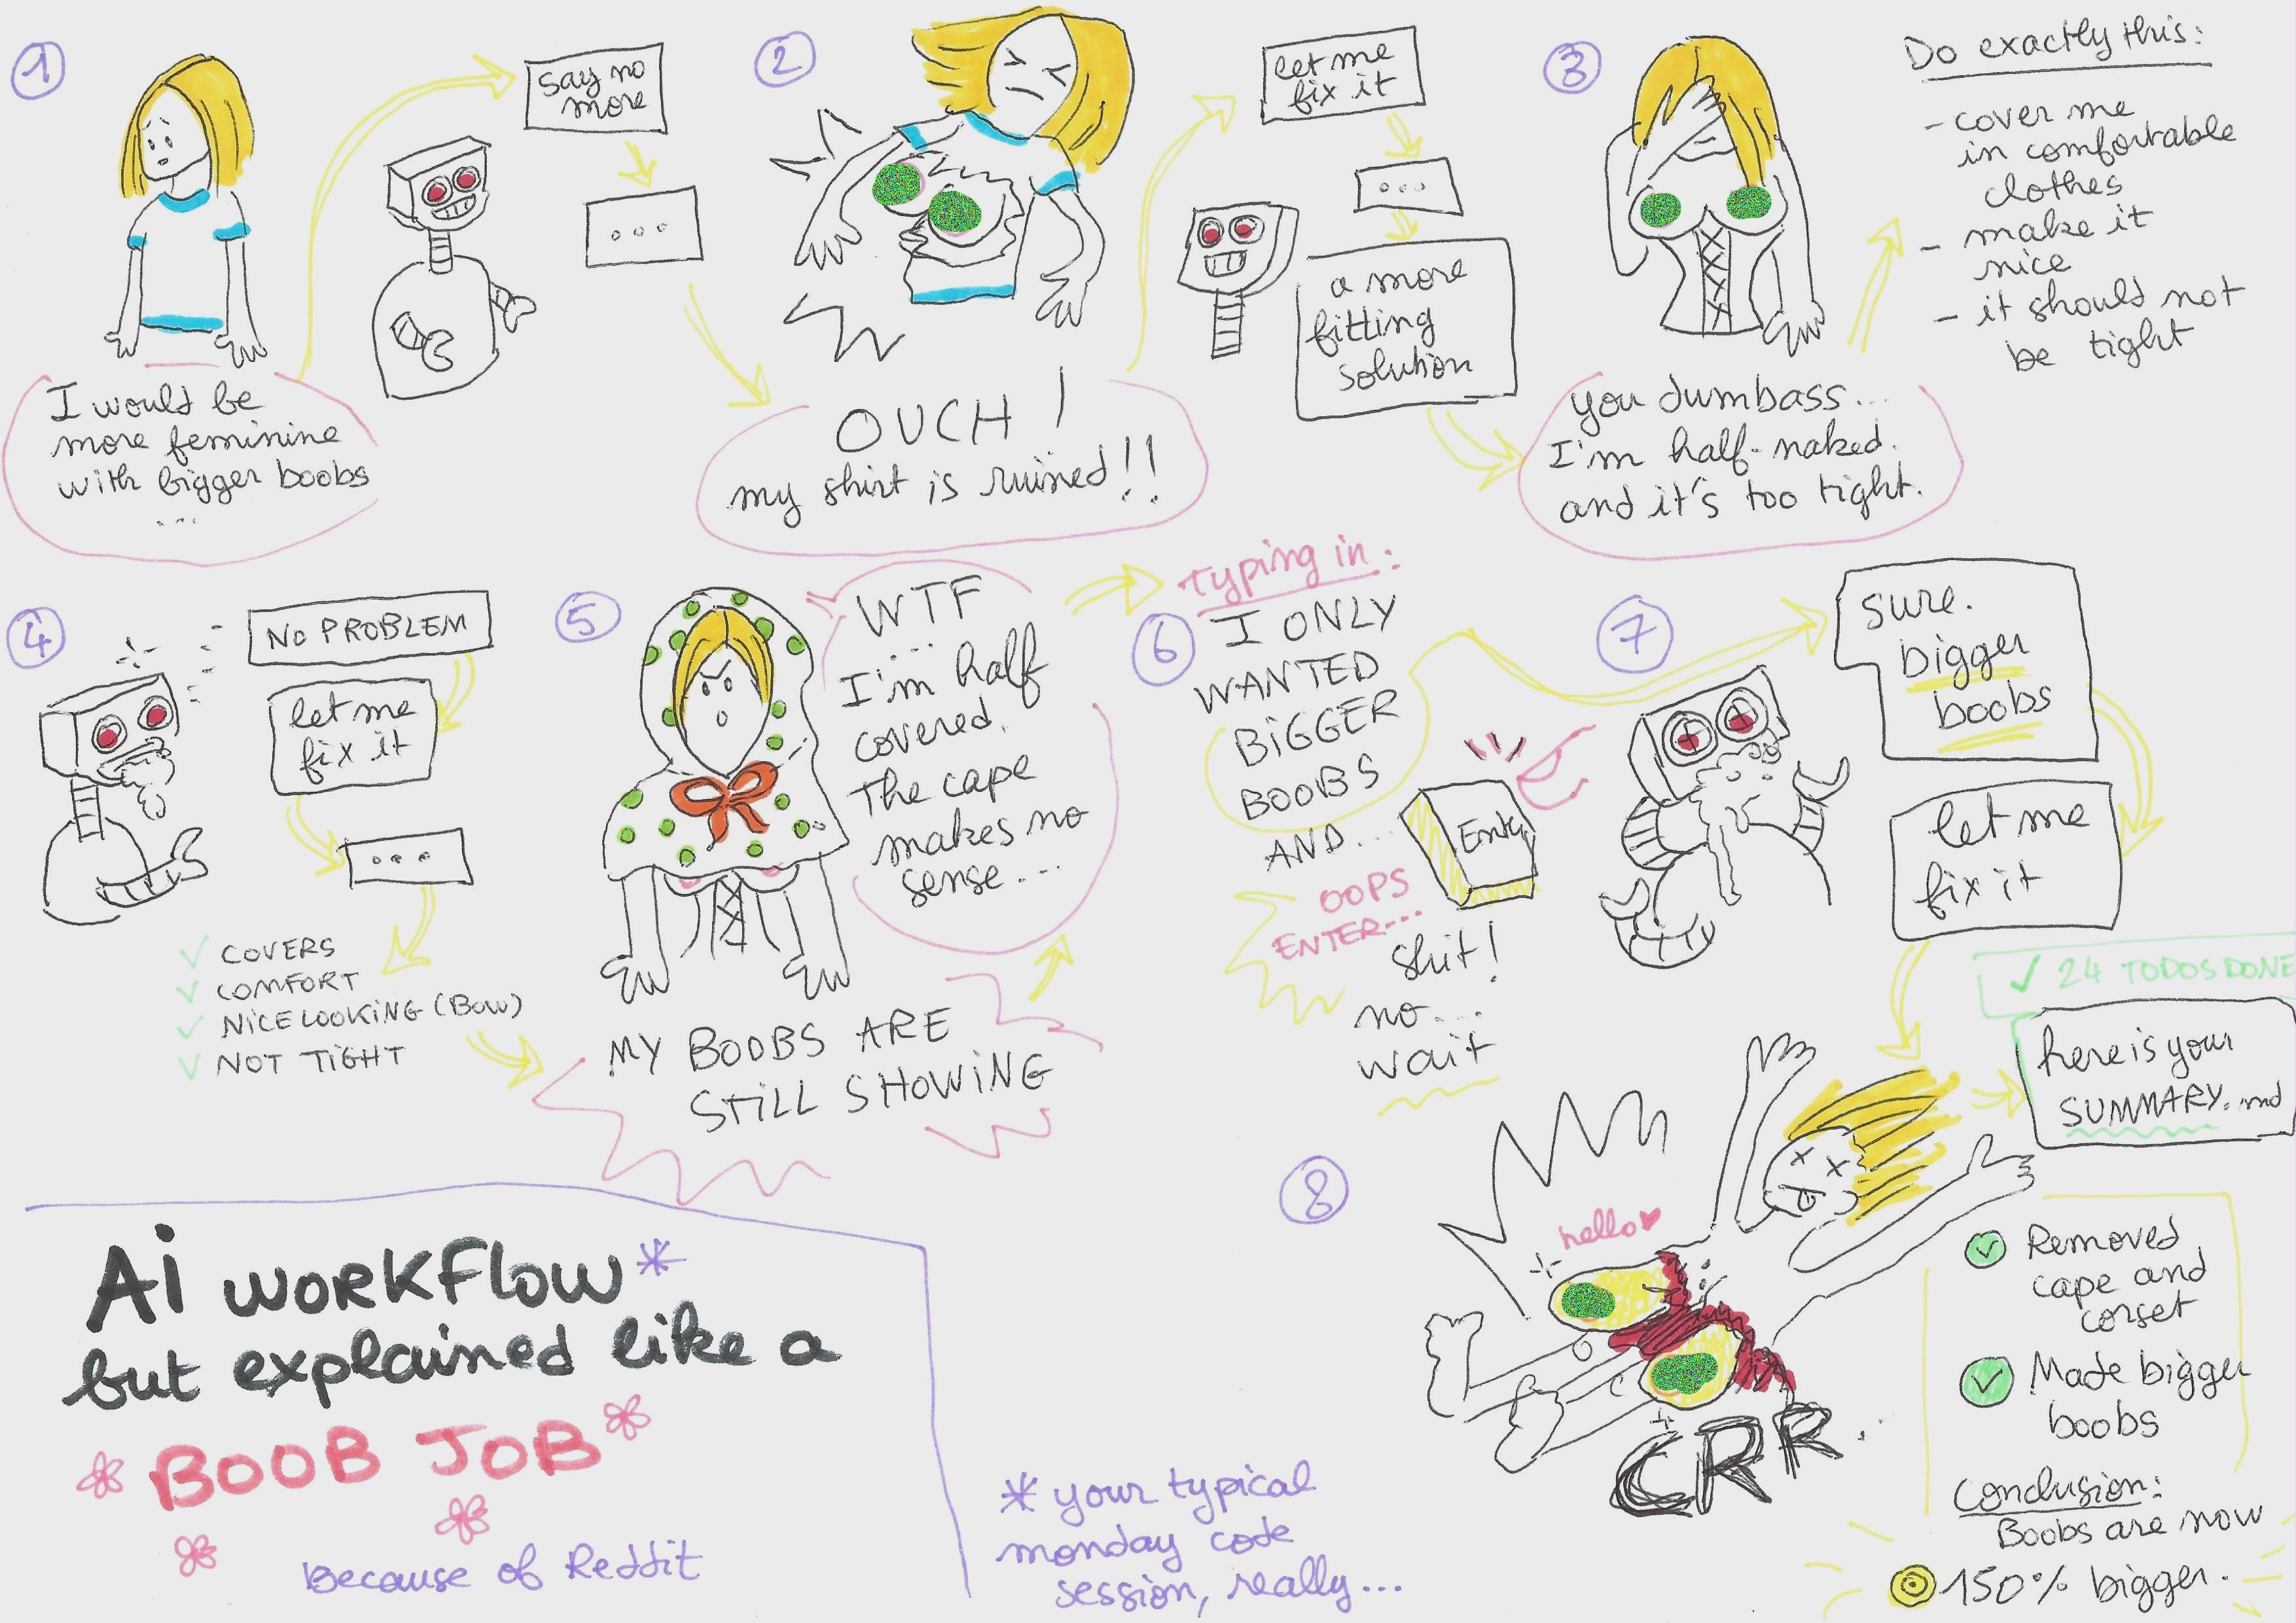 1
I would be
more feminine
with bigger boobs
...
say no
more
...
2
OUCH !
my shirt is ruined!!
let me
fix it
...
a more
fitting
solution
3
you dumbass...
I'm half-naked.
and it's too tight.
Do exactly this:
- cover me
in comfortable
clothes
- make it
nice
- it should not
be tight
4
NO PROBLEM
let me
fix it
...
✓ COVERS
✓ COMFORT
✓ NICE LOOKING (BOW)
✓ NOT TIGHT
5
MY BOOBS ARE
STILL SHOWING
WTF
....
I'm half
covered.
The cape
makes no
sense...
6
Typing in:
I ONLY
WANTED
BIGGER
BOOBS
AND...
OOPS
ENTER...
Enter
shit!
no...
wait
7
sure.
bigger
boobs
let me
fix it
✓ 24 TODOS DONE
here is your
SUMMARY.md
8
hello♥
CRR.
✓ Removed
cape and
corset
✓ Made bigger
boobs
Conclusion:
Boobs are now
150% bigger.
Ai workflow*
but explained like a
BOOB JOB
Because of Reddit
* your typical
monday code
session, really...